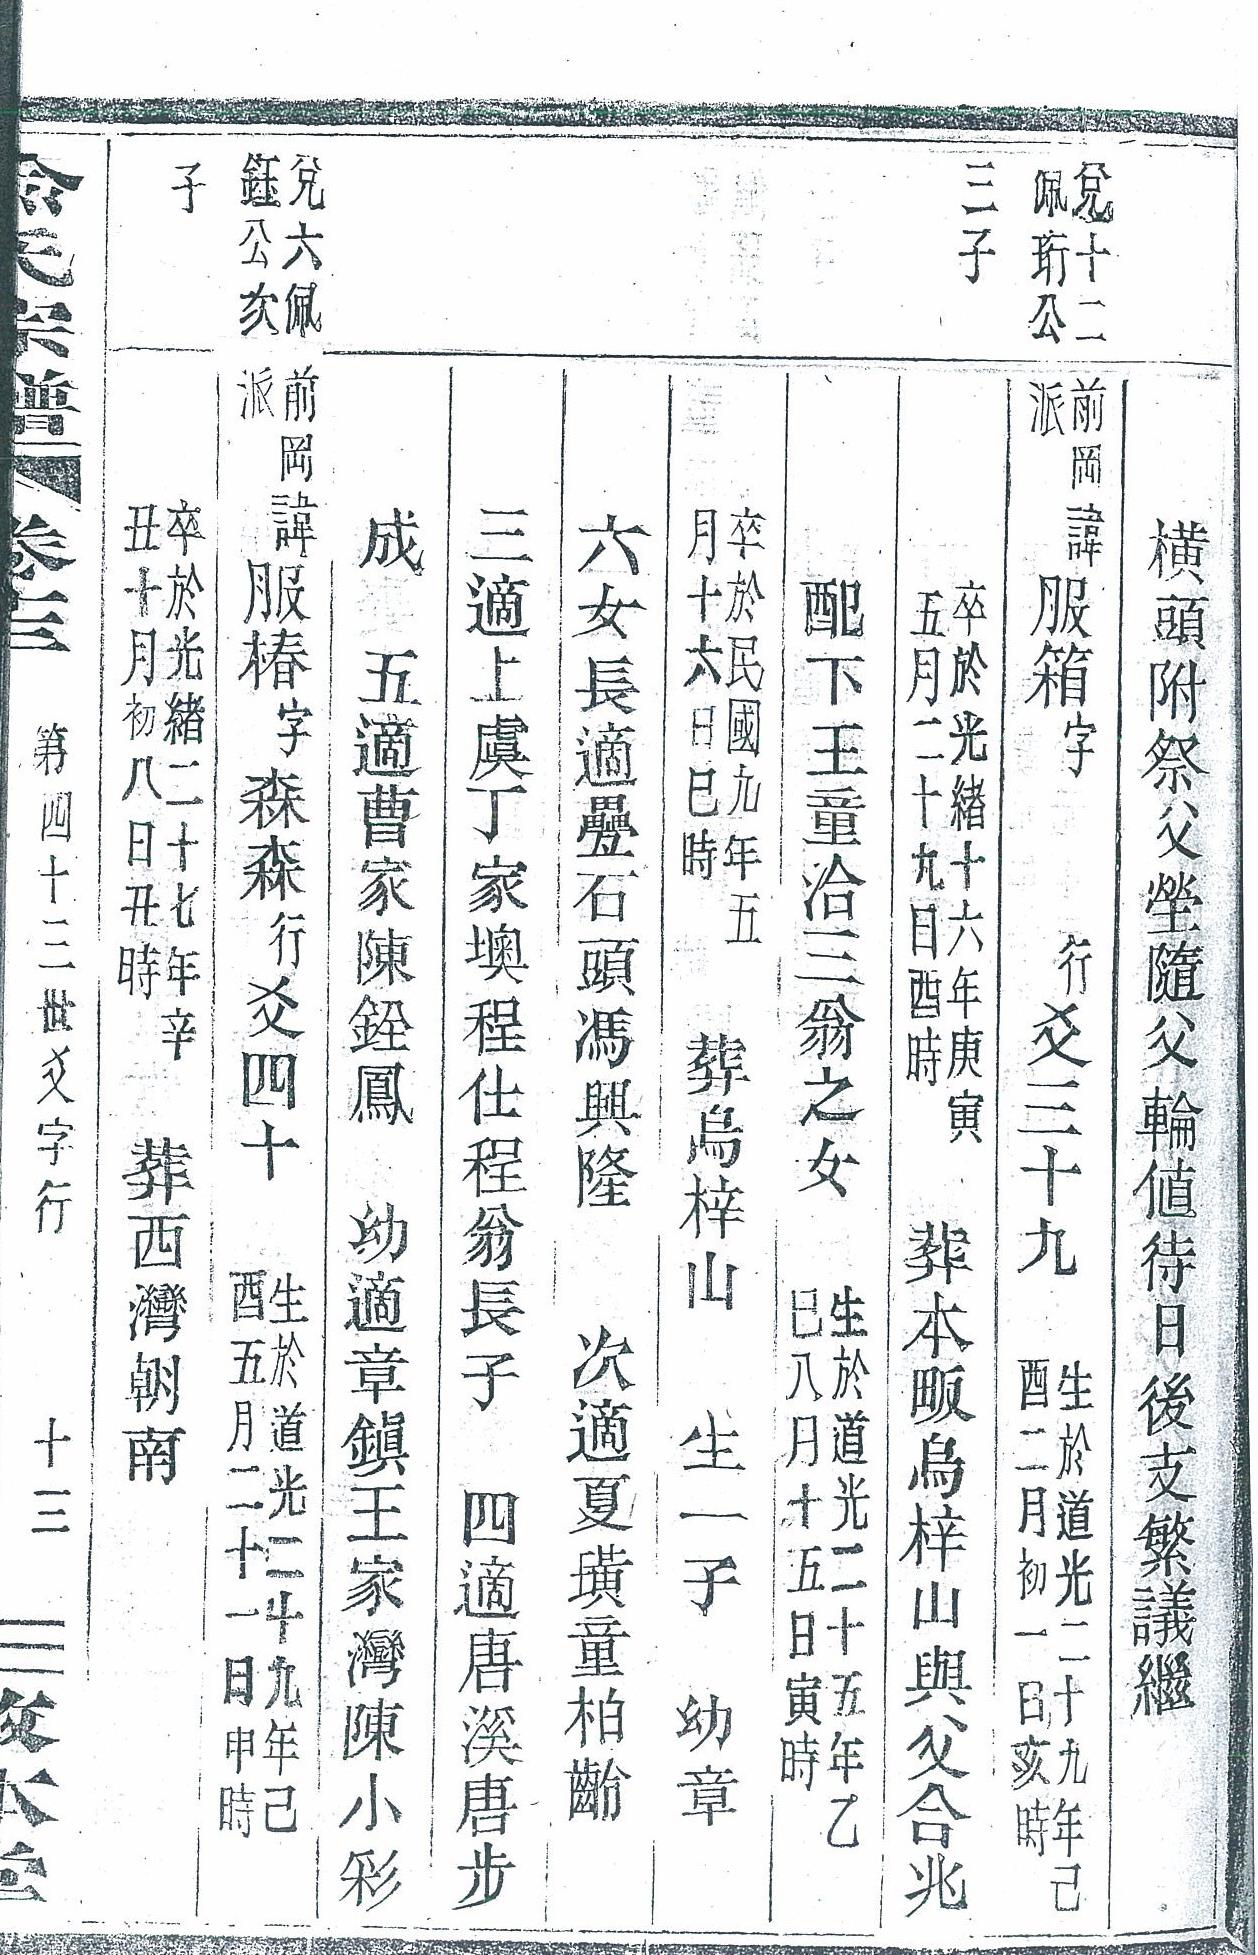 橫頭附祭父塋隨父輪値待日後支繁議繼
兌十二
佩珩公
三子
前岡
派
諱服箱字 行爻三十九
生於道光二十九年己
酉二月初一日亥時
卒於光緒十六年庚寅
五月二十九日酉時
葬本畈烏梓山與父合兆
配下王童洽三翁之女
生於道光二十五年乙
巳八月十五日寅時
卒於民國九年五
月十六日巳時
葬烏梓山 生一子 幼章
六女長適疊石頭馮興隆 次適夏璜童柏齡
三適上虞丁家墺程仕程翁長子 四適唐溪唐步
成 五適曹家陳銓鳳 幼適章鎭王家灣陳小彩
兌六佩
鈺公次
子
前岡
派
諱服椿字森森行爻四十
生於道光二十九年己
酉五月二十一日申時
卒於光緒二十七年辛
丑十月初八日丑時
葬西灣朝南
氏宗譜 卷三 第四十三世爻字行 十三 本堂